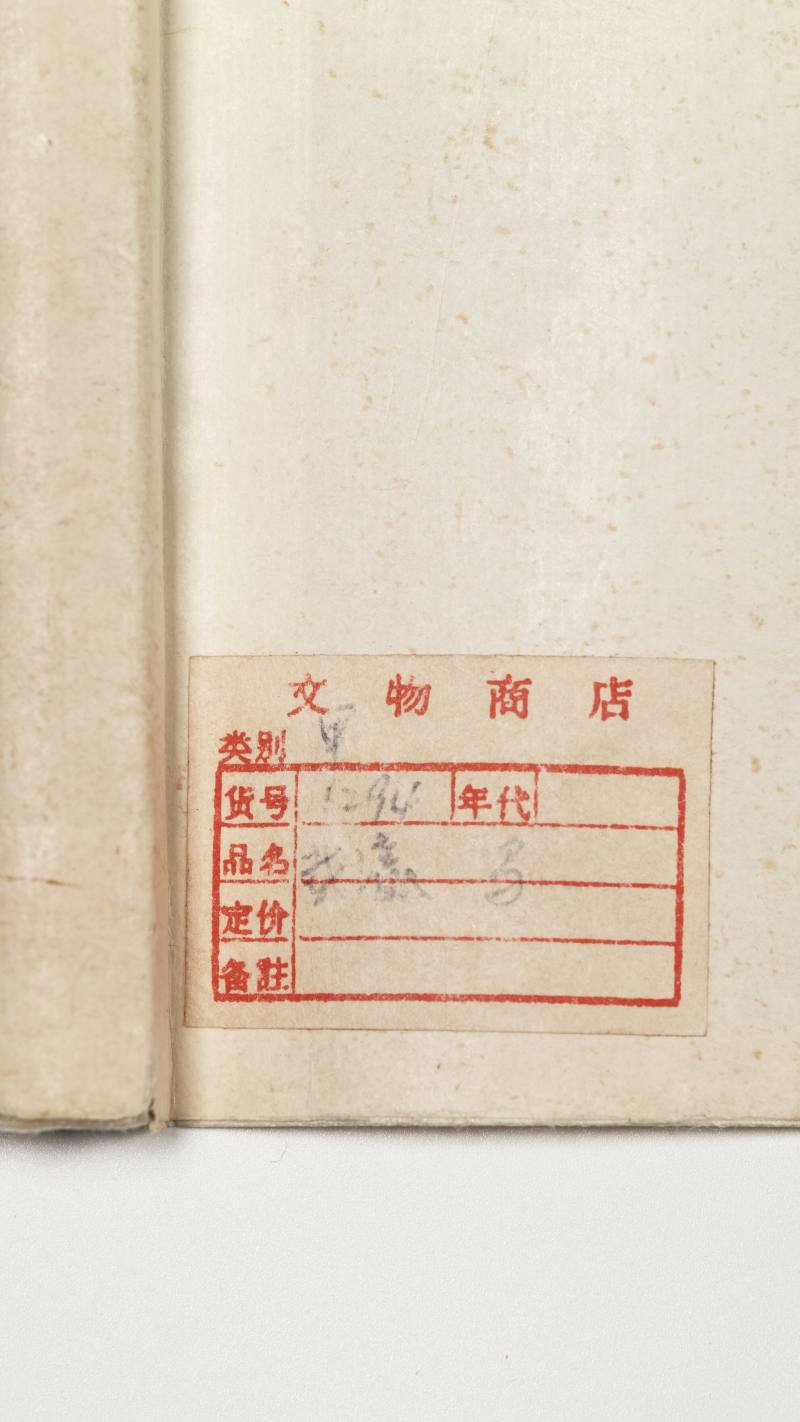 文物商店
类别 甲
货号 1294 年代
品名
定价
备註